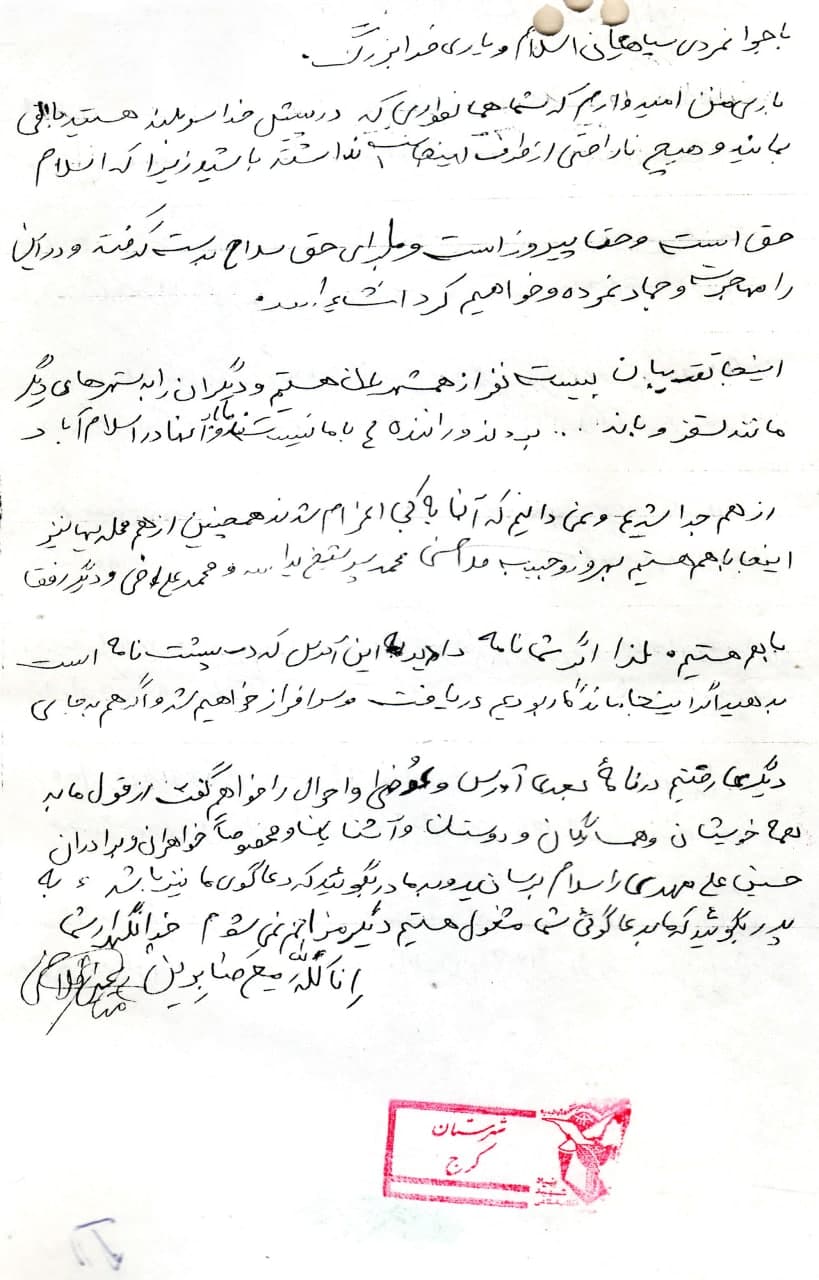 با جوانمردی سپاهیان اسلام و یاری خدا بزرگ.
باری من امیدوارم که شما همانطوری که در پیش خدا سربلند هستید باقی
بمانید و هیچ ناراحتی از طرف اینجانب نداشته باشید زیرا که اسلام
حق است و حق پیروز است و ما برای حق سلاح بدست گرفته و در این
را مهاجرت و جهاد نموده و خواهیم کرد انشاءالله.
اینجا تقریبان بیست نفر از همشهریان هستیم و دیگران را به شهرهای دیگر
مانند سقز و بانه ... بردند و راننده ای با ما نیست در اسلام آباد
از هم جدا شدیم و نمی دانیم که آنها به کجا اعزام شدند همچنین از هم محله یها نیز
اینجا با هم هستیم بهروز و حبیب محمد پسر شیخ یداله و محمد علی و دیگر رفقا
با هم هستیم. لذا اگر شما نامه دادید به این آدرس که در پشت نامه است
بدهید اگر اینجا ماندگار بودیم دریافت و سرافراز خواهیم شد و اگر هم به جای
دیگری رفتیم در نامهٔ بعدی آدرس و احوال را خواهم گفت از قول ما به
همه خویشان و همسایگان و دوستان و آشنایان و مخصوصاً خواهران و برادران
حسین علی مهدی را سلام برسانید و به مادر بگوئید که دعاگوی ما نیز باشد، به
پدر بگوئید که ما به دعاگوئی شما مشغول هستیم دیگر مزاحم نمی شوم خدا نگهدار شما
ان الله مع صابرین
شهرستان
کرج
بنیاد
شهید
انقلاب اسلامی